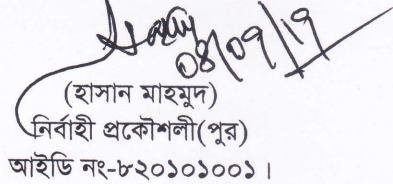 08/09/19
(হাসান মাহমুদ)
নির্বাহী প্রকৌশলী(পুর)
আইডি নং-৮২০১০১০০১।